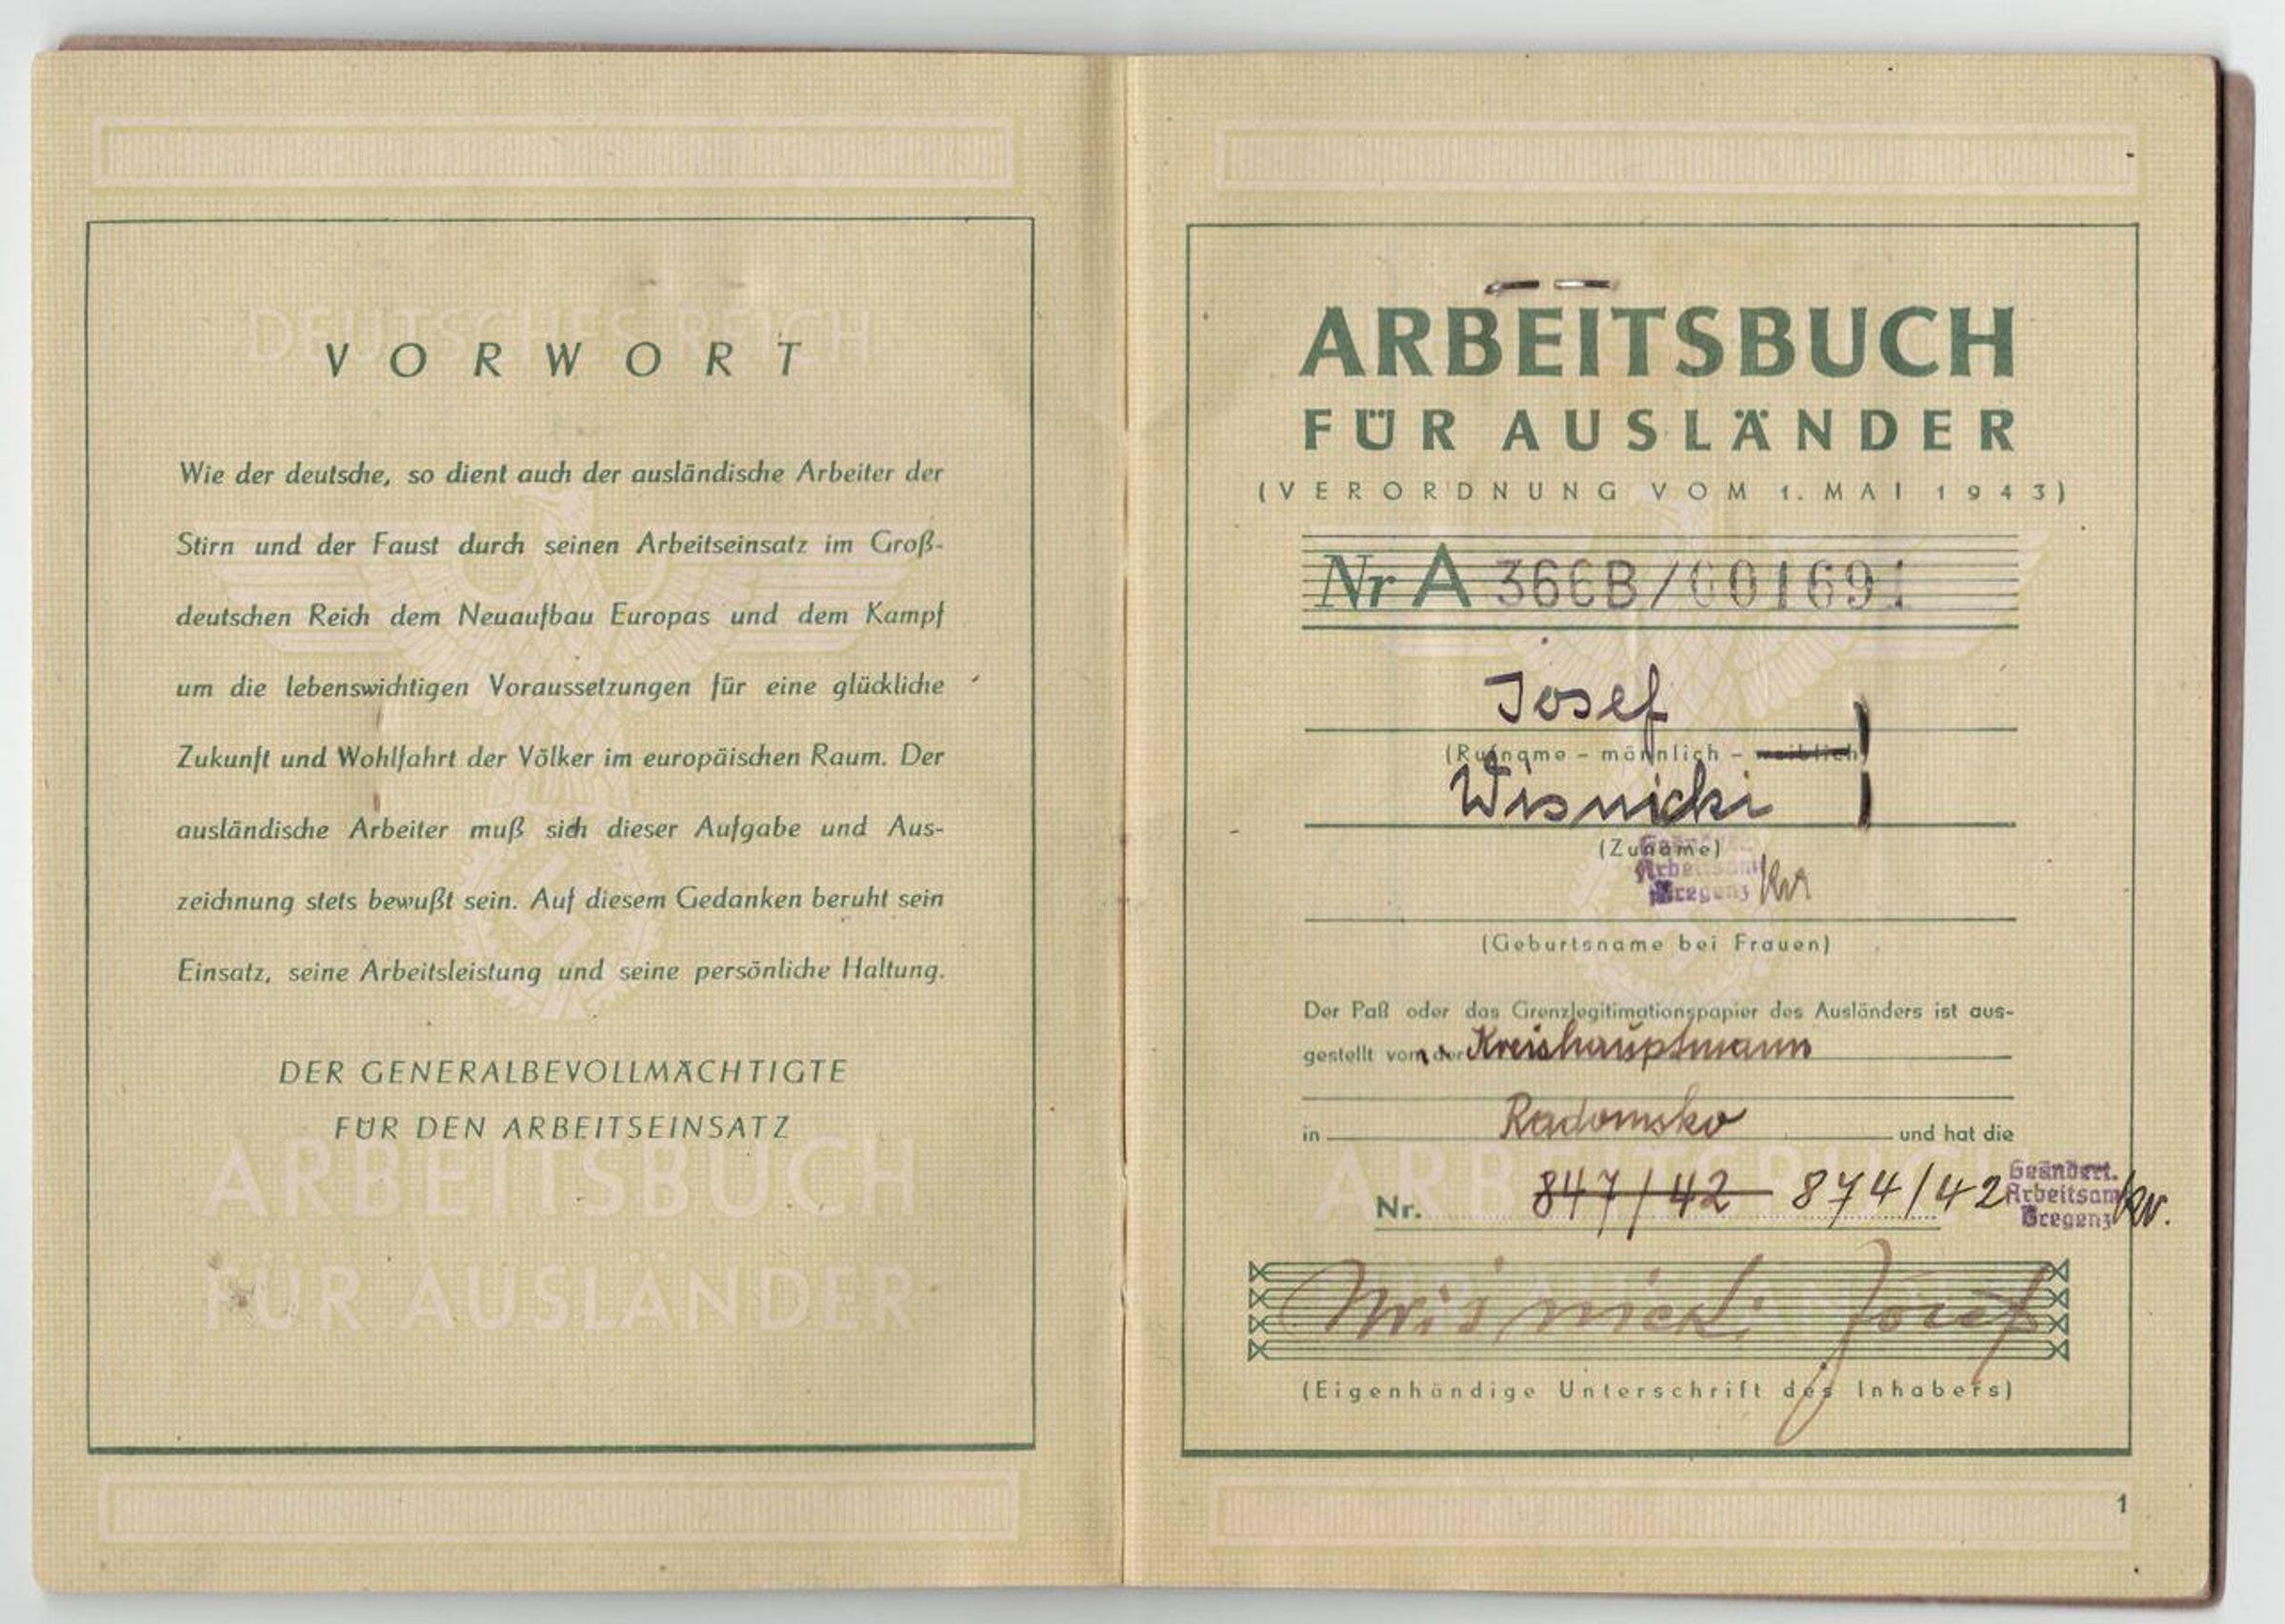 DEUTSCHES REICH
VORWORT
Wie der deutsche, so dient auch der ausländische Arbeiter der
Stirn und der Faust durch seinen Arbeitseinsatz im Groß-
deutschen Reich dem Neuaufbau Europas und dem Kampf
um die lebenswichtigen Voraussetzungen für eine glückliche
Zukunft und Wohlfahrt der Völker im europäischen Raum. Der
ausländische Arbeiter muß sich dieser Aufgabe und Aus-
zeichnung stets bewußt sein. Auf diesem Gedanken beruht sein
Einsatz, seine Arbeitsleistung und seine persönliche Haltung.
DER GENERALBEVOLLMÄCHTIGTE
FÜR DEN ARBEITSEINSATZ
ARBEITSBUCH
FÜR AUSLÄNDER
ARBEITSBUCH
FÜR AUSLÄNDER
(VERORDNUNG VOM 1. MAI 1943)
Nr A 366B/001691
Josef
(Rufname - männlich - weiblich)
Wisnicki
(Zuname)
Geändert.
Arbeitsamt
Bregenz
(Geburtsname bei Frauen)
Der Paß oder das Grenzlegitimationspapier des Ausländers ist aus-
gestellt vom der Kreishauptmann
in Radomsko und hat die
Nr. 847/42 874/42
Geändert.
Arbeitsamt
Bregenz
Wiśnicki Józef
(Eigenhändige Unterschrift des Inhabers)
1